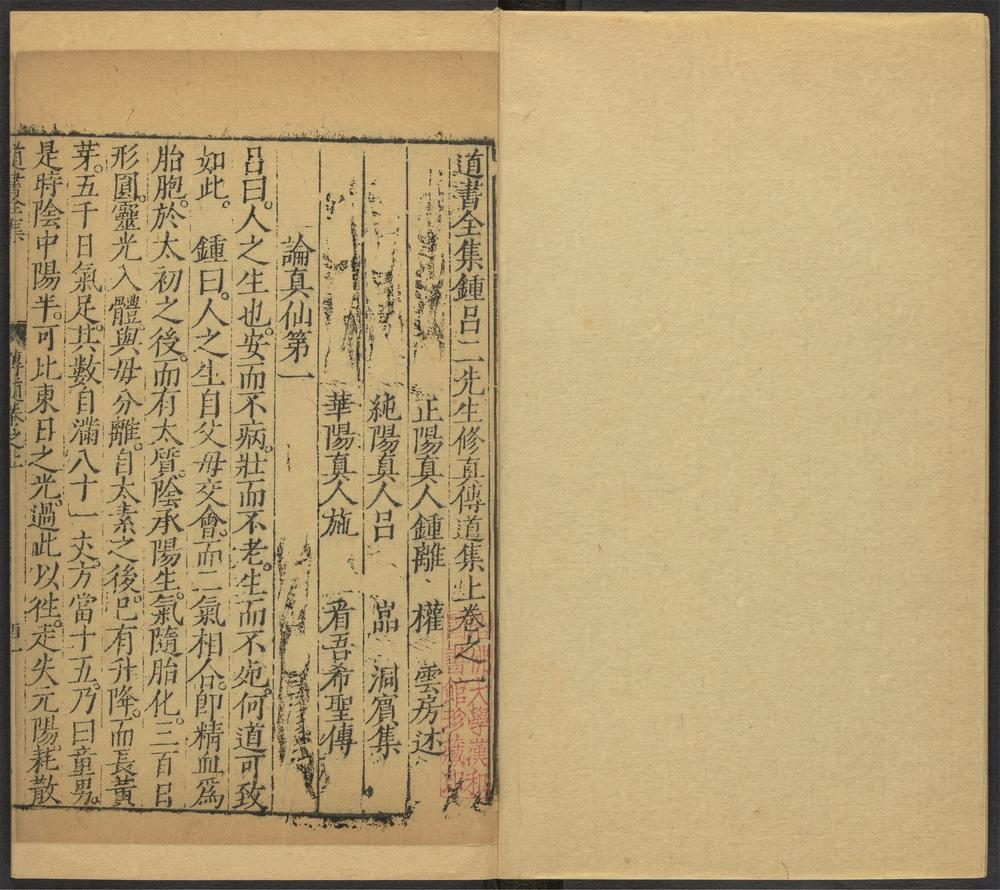 道書全集鍾呂二先生修真傳道集上卷之一
正陽真人鍾離 權 雲房述
純陽真人呂 嵒 洞賓集
華陽真人施 肩吾希聖傳
論真仙第一
呂曰。人之生也。安而不病。壯而不老。生而不死。何道可致
如此。 鍾曰。人之生自父母交會。而二氣相合。卽精血爲
胎胞。於太初之後。而有太質。陰承陽生。氣隨胎化。三百日
形圓。靈光入體。與母分離。自太素之後。已有升降。而長黃
芽。五千日氣足。其數自滿八十一丈。方當十五。乃曰童男。
是時陰中陽半。可比東日之光。過此以徃。走失元陽。耗散
道書全集
傳道卷之上
佛大學漢和
圖書館珍藏印